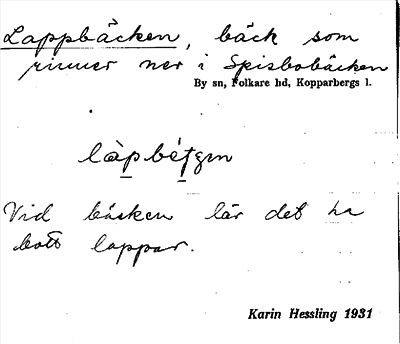 Lappbäcken, bäck som
rinner ner i Spisbobäcken
By sn, Folkare hd, Kopparbergs l.
Vid bäcken lär det ha
bott lappar.
Karin Hessling 1931